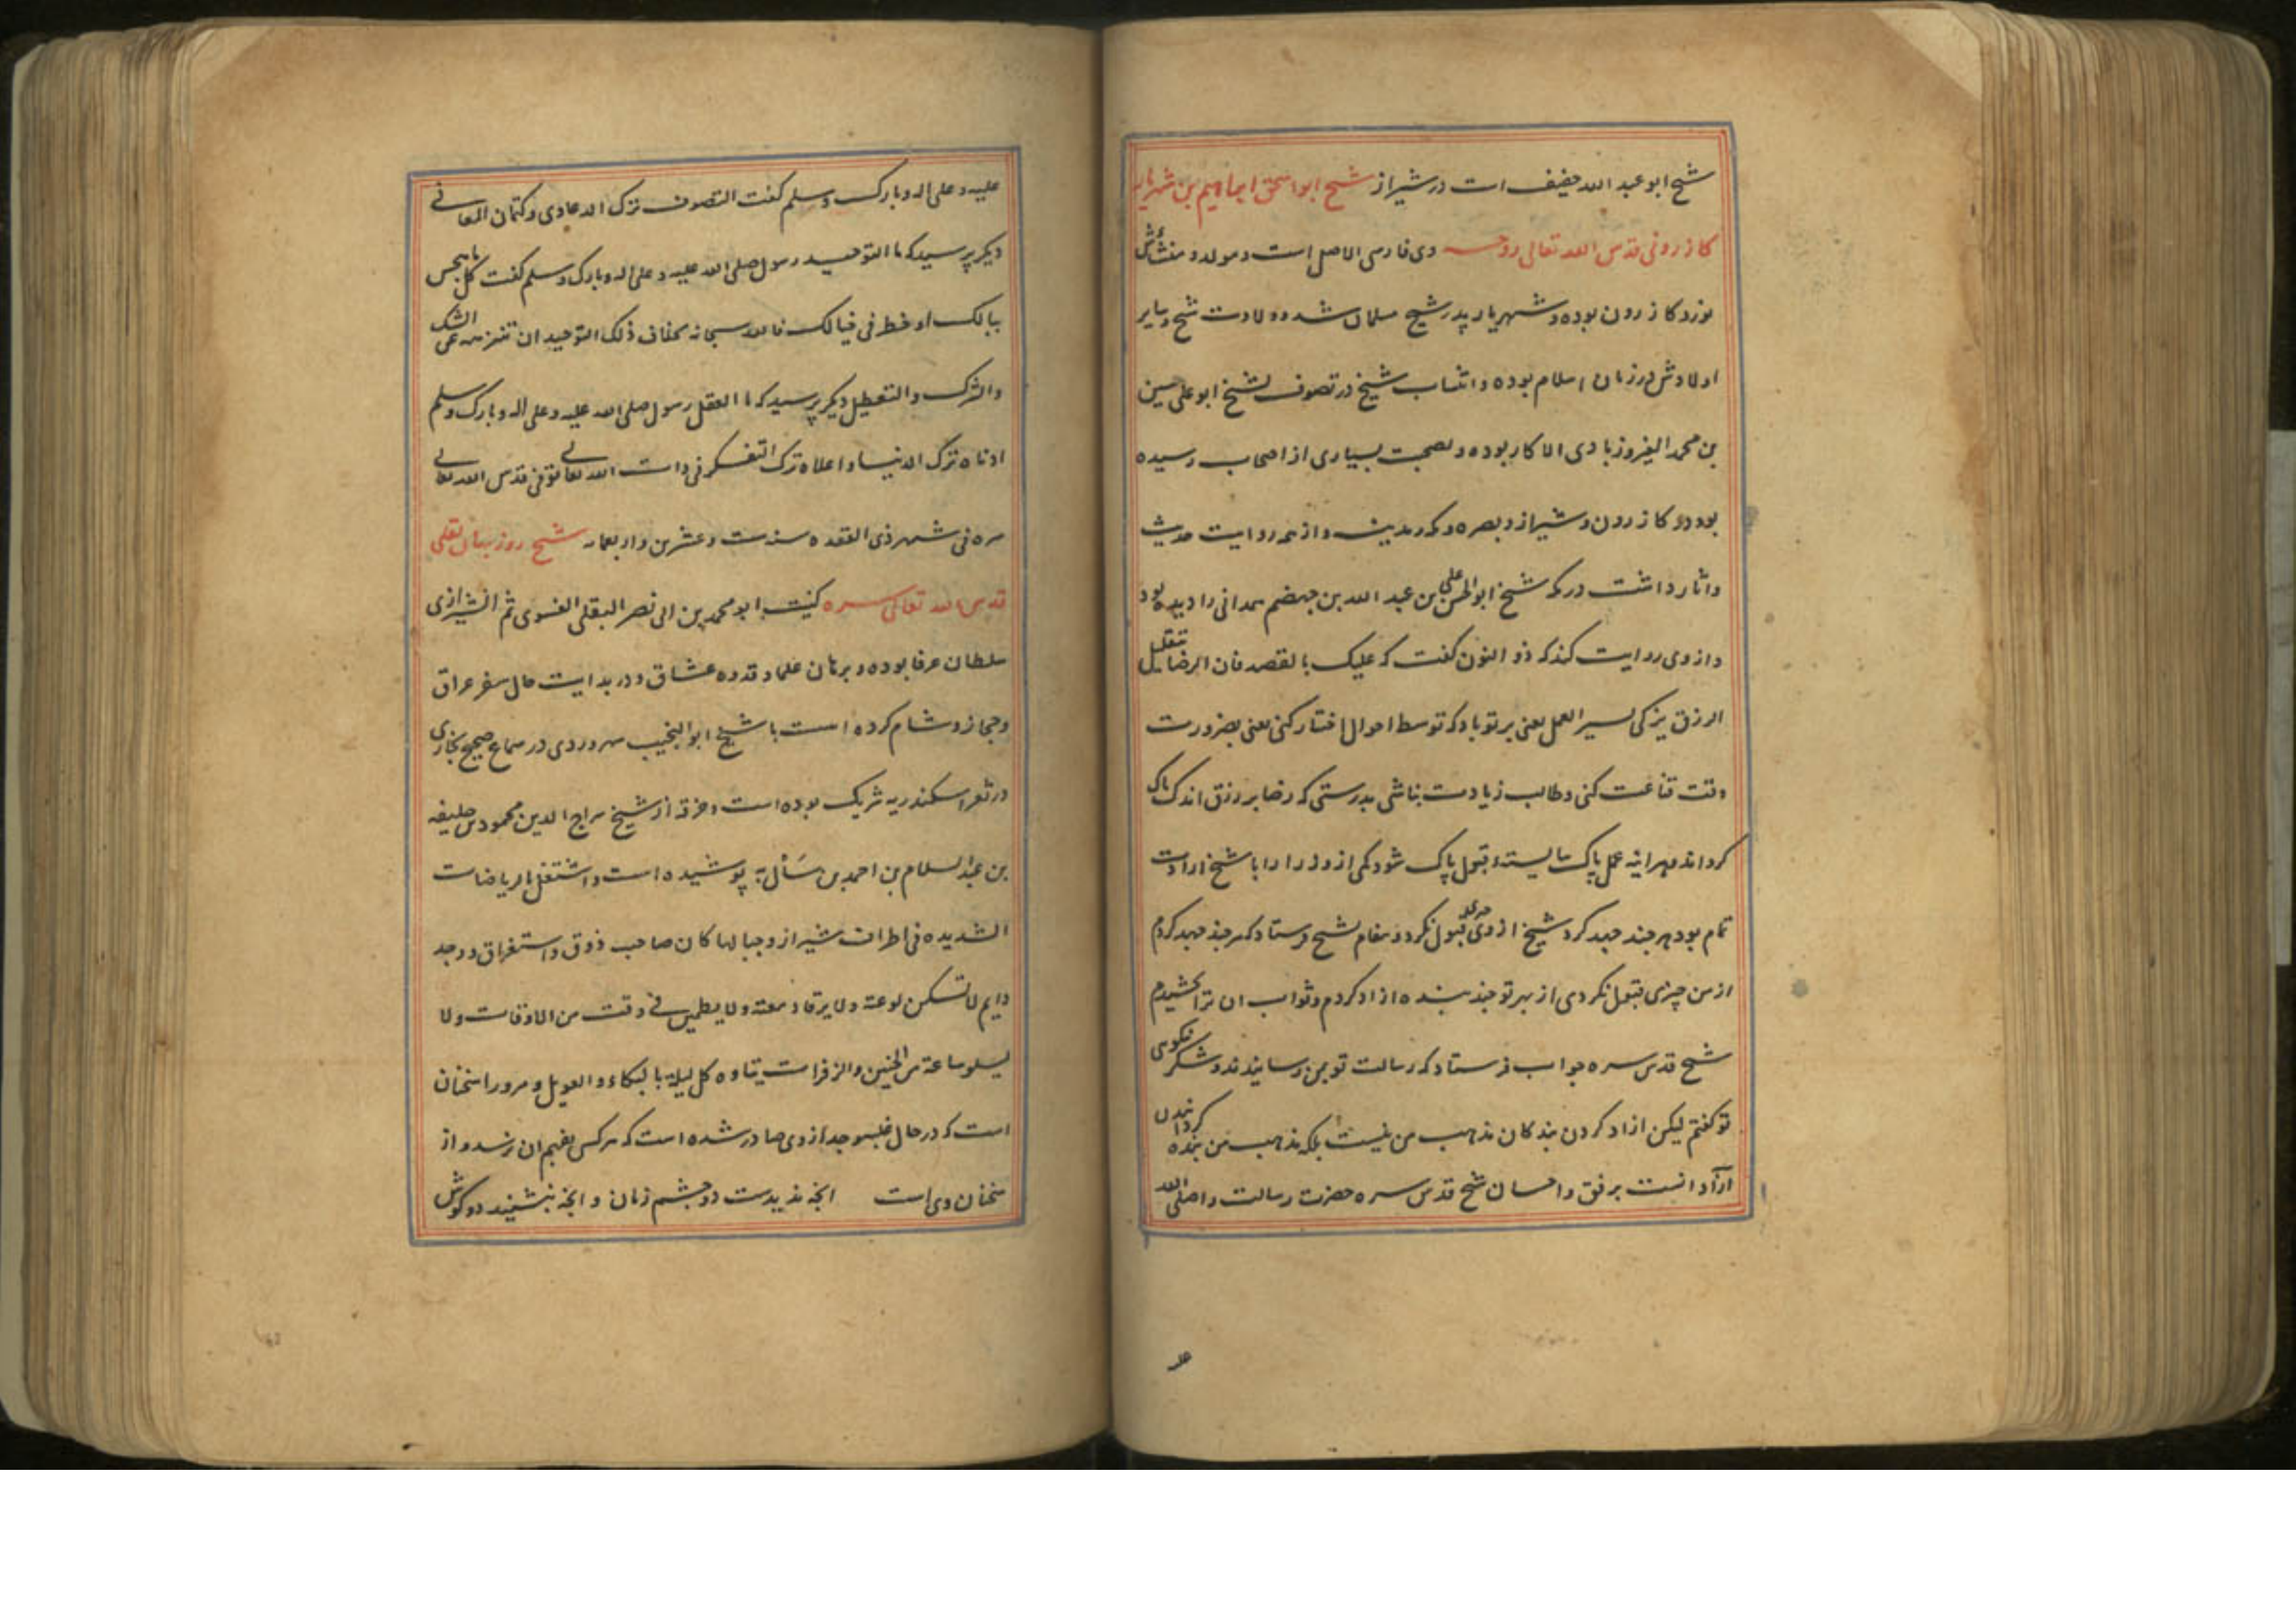 شیخ ابو عبد الله خفیف است در شیراز شیخ ابو اسحق ابراهیم بن شهریار
کازرونی قدس الله تعالی روحه وی فارسی الاصل است و مولد و منشأش
نورد کازرون بوده و شهریار پدر شیخ مسلمان شده و ولادت شیخ و سایر
اولادش در زمان اسلام بوده و انتساب شیخ در تصوف بشیخ ابو علی حسین
بن محمد الفیروزبادی الاکار بوده و بصحبت بسیاری از اصحاب رسیده
بود در کازرون و شیراز و بصره و مکه و مدینه و از همه روایت حدیث
و اثار داشت در مکه شیخ ابو الحسن علی بن عبد الله بن جهضم همدانی را دیده بود
و از وی روایت کند که ذو النون گفت که علیک بالقصد فان الرضا بقلیل
الرزق یزکی یسیر العمل یعنی بر تو باد که توسط احوال اختیار کنی یعنی بضرورت
وقت قناعت کنی و طالب زیادت نباشی بدرستی که رضا برزق اندک پاک
کرداند هراینه عمل پاک شایسته و قبول پاک شود یکی از وزرا را با شیخ ارادت
تمام بود هر چند جهد کرد شیخ از وی چیزی قبول نکرد و پیغام بشیخ فرستاد که هر چند جهد کردم
از من چیزی قبول نکردی از بهر تو چند بنده ازاد کردم و ثواب ان ترا بخشیدم
شیخ قدس سره جواب فرستاد که رسالت تو بمن رسانیدند و شکر نیکویی
تو کفتم لیکن ازاد کردن بندکان مذهب من نیست بلکه مذهب من بنده کردانیدن
آزادانست برفق و احسان شیخ قدس سره حضرت رسالت را صلی الله
علیه و علی اله و بارک و سلم گفت التصوف ترک الدعاوی و کتمان المعانی
دیکر پرسید که ما التوحید رسول صلی الله علیه و علی اله و بارک و سلم کفت کل ما هجس
ببالک او خطر فی خیالک فالله سبحانه بخلاف ذلک التوحید ان تنزهه عن الشک
والشرک والتعطیل دیکر پرسید که ما العقل رسول صلی الله علیه و علی اله و بارک و سلم
ادناه ترک الدنیا و اعلاه ترک التفکر فی ذات الله تعالی توفی قدس الله تعالی
سره فی شهر ذی القعده سنه ست و عشرین و اربعمایه شیخ روزبهان بقلی
قدس الله تعالی سره کنیت ابو محمد بن ابی نصر البقلی الفسوی ثم الشیرازی
سلطان عرفا بوده و برهان علما و قدوه عشاق و در بدایت حال سفر عراق
و حجاز و شام کرده است با شیخ ابو النجیب سهروردی در سماع صحیح بخاری
در ثغر اسکندریه شریک بوده است و خرقه از شیخ سراج الدین محمود بن خلیفه
بن عبد السلام بن احمد بن سأل به پوشیده است و اشتغل بالریاضات
الشدیده فی اطراف شیراز و جبالها کان صاحب ذوق و استغراق و وجد
دایم لا تسکن لوعته ولا یرقا دمعته ولا یطمین فی وقت من الاوقات ولا
یسلو ساعة من الحنین والزفرات یتاوه کل لیلة بالبکاء والعویل و مر ورا سخنان
است که در حال غلبه وجد از وی صادر شده است که هر کس بفهم ان نرسد و از
سخنان وی است انچه ندیدست دو چشم زمان و انچه نبشنید دو کوش